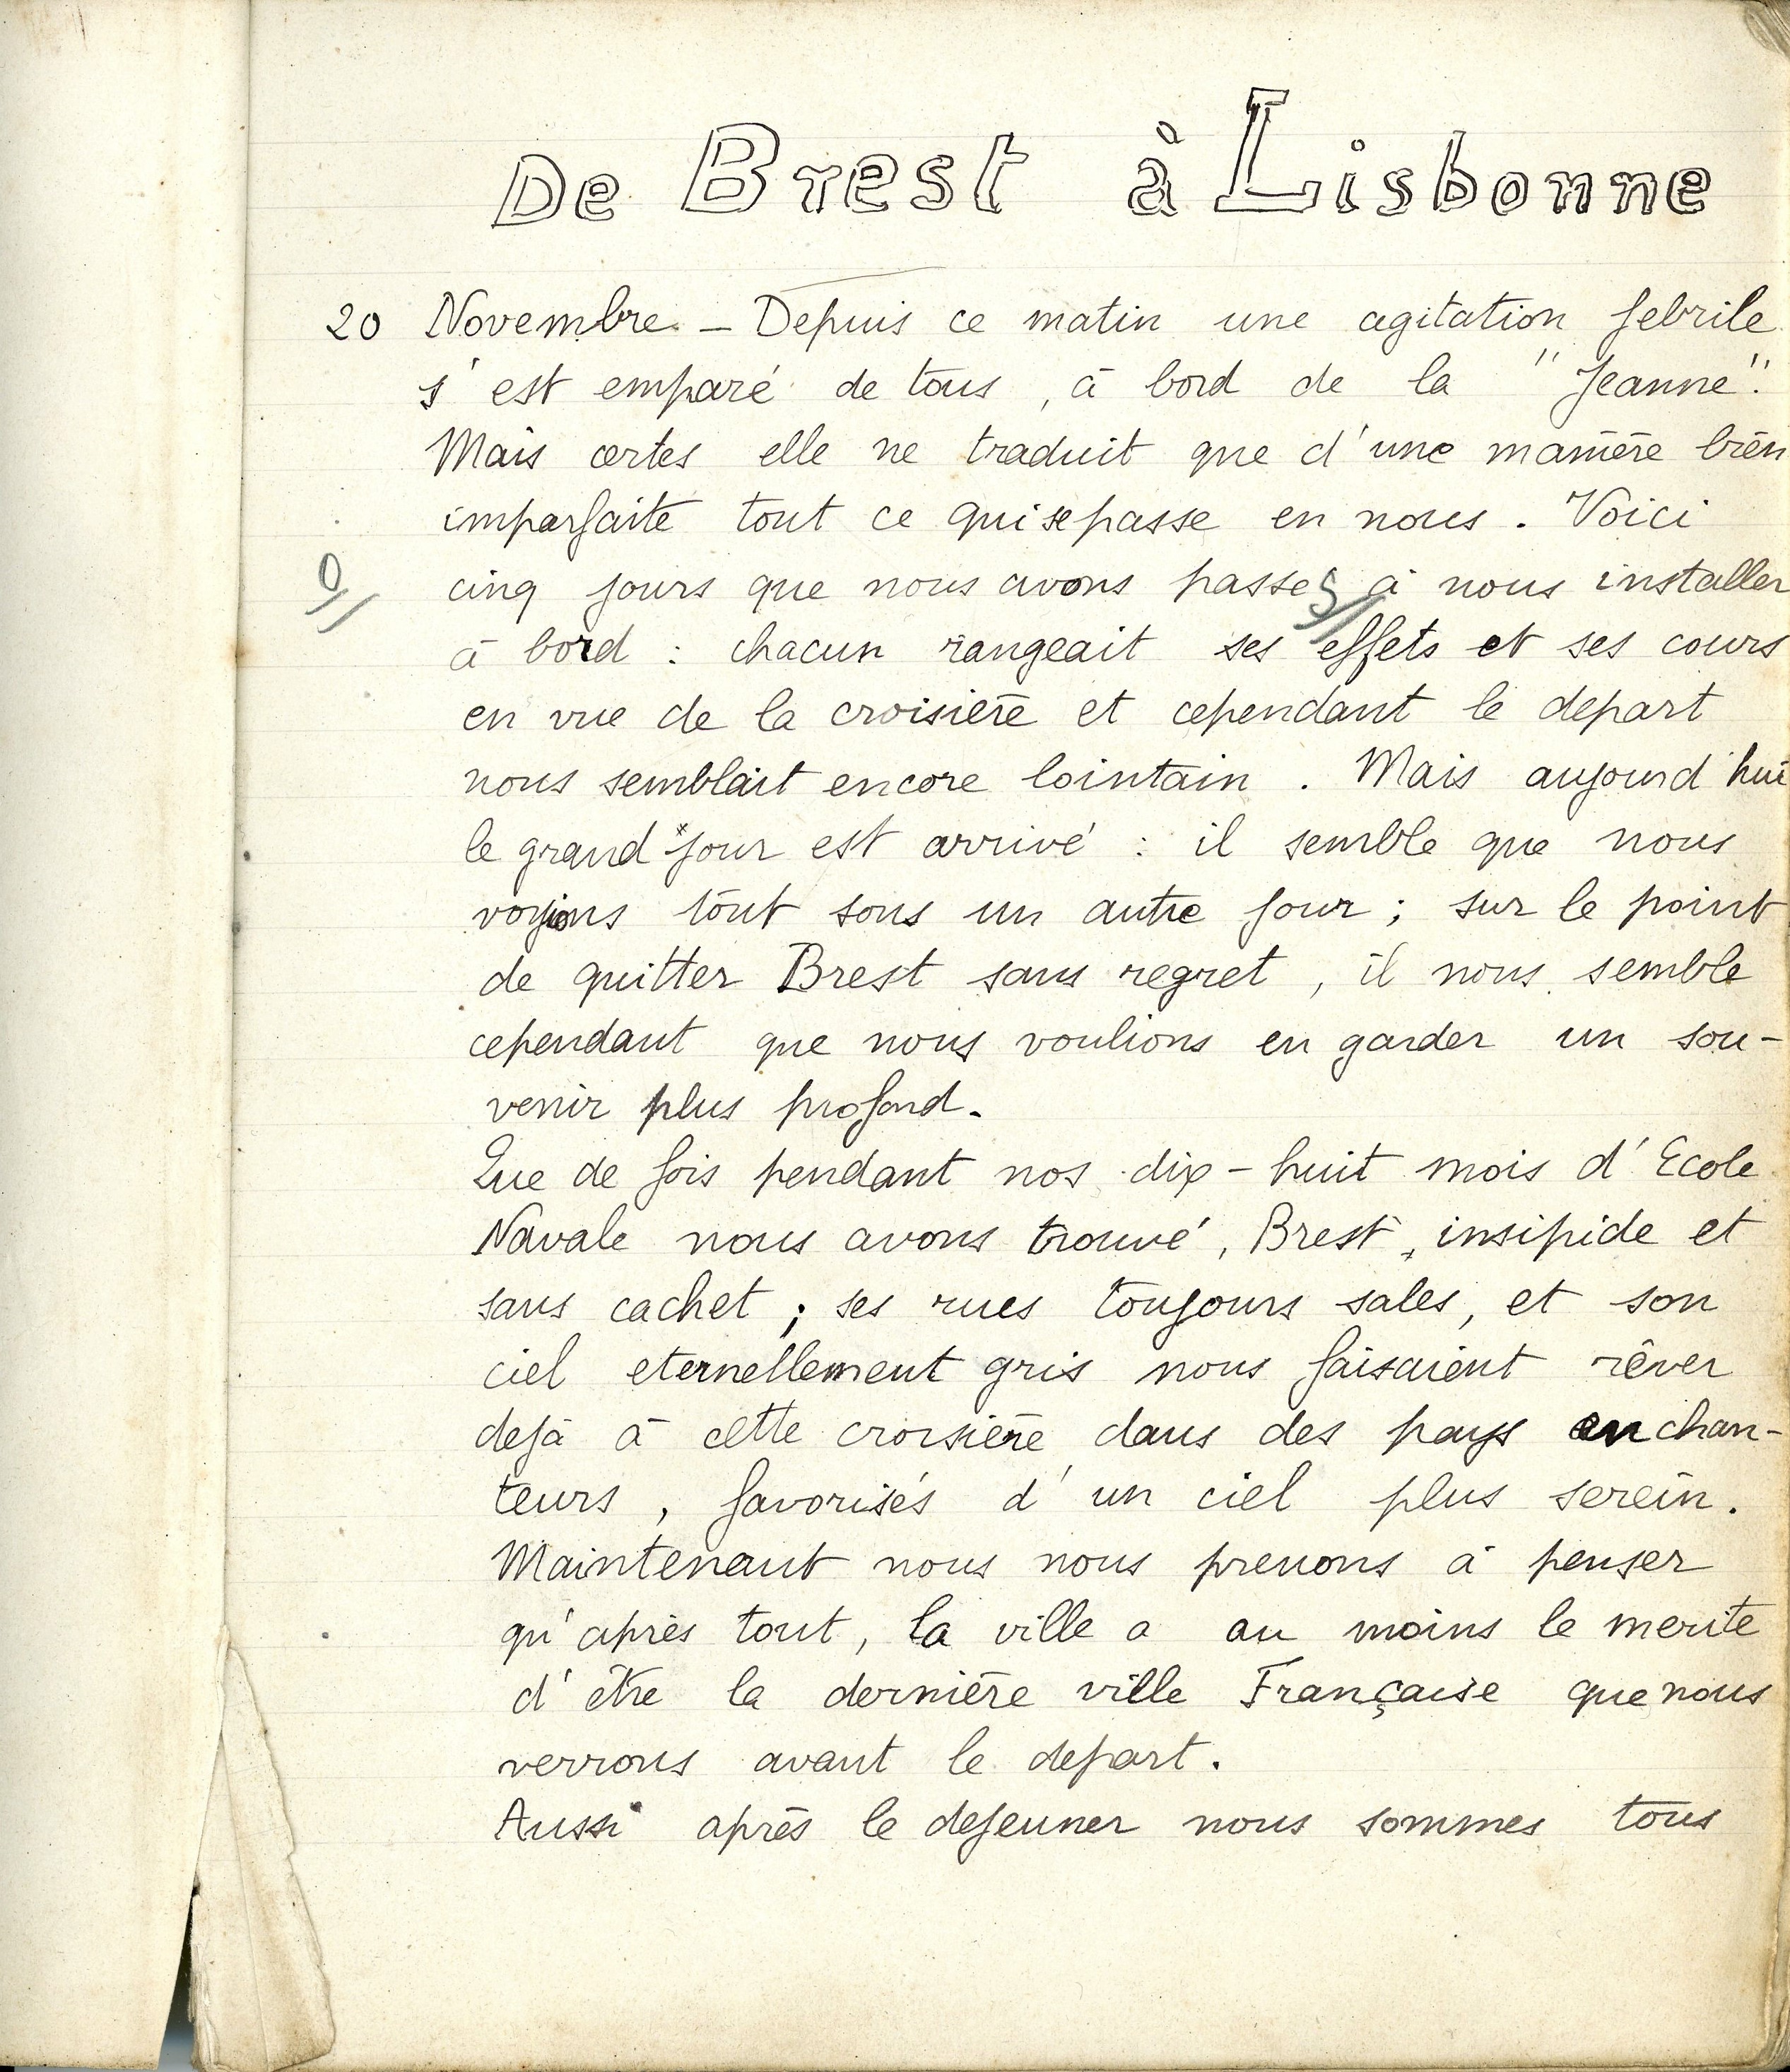 De Brest à Lisbonne
20 Novembre. – Depuis ce matin une agitation febrile
s'est emparé de tous, à bord de la "Jeanne".
Mais certes elle ne traduit que d'une manière bien
imparfaite tout ce qui se passe en nous. Voici
cinq jours que nous avons passés à nous installer
à bord : chacun rangeait ses effets et ses cours
en vue de la croisière et cependant le depart
nous semblait encore lointain. Mais aujourd'hui
le grand jour est arrivé : il semble que nous
voyions tout sous un autre jour ; sur le point
de quitter Brest sans regret, il nous semble
cependant que nous voulions en garder un sou-
venir plus profond.
Que de fois pendant nos dix-huit mois d'Ecole
Navale nous avons trouvé, Brest, insipide et
sans cachet ; ses rues toujours sales, et son
ciel eternellement gris nous faisaient rêver
dejà à cette croisière dans des pays enchan-
teurs, favorisés d'un ciel plus serein.
Maintenant nous nous prenons à penser
qu'après tout, la ville a au moins le merite
d'être la dernière ville Française que nous
verrons avant le depart.
Aussi après le dejeuner nous sommes tous